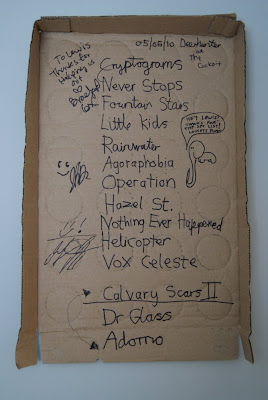 To Lewis
Thanks for
Helping us
out
Bradford
Cox
05/05/10 Deerhunter
at
The
Cuckoo
Cryptograms
Never Stops
Fountain Stairs
Little kids
Rainwater
Agoraphobia
Operation
Hazel St.
Nothing Ever Happened
Helicopter
Vox Celeste
HEY LEWIS!
THANKS FOR
Calvary Scars II
Dr Glass
Adorno